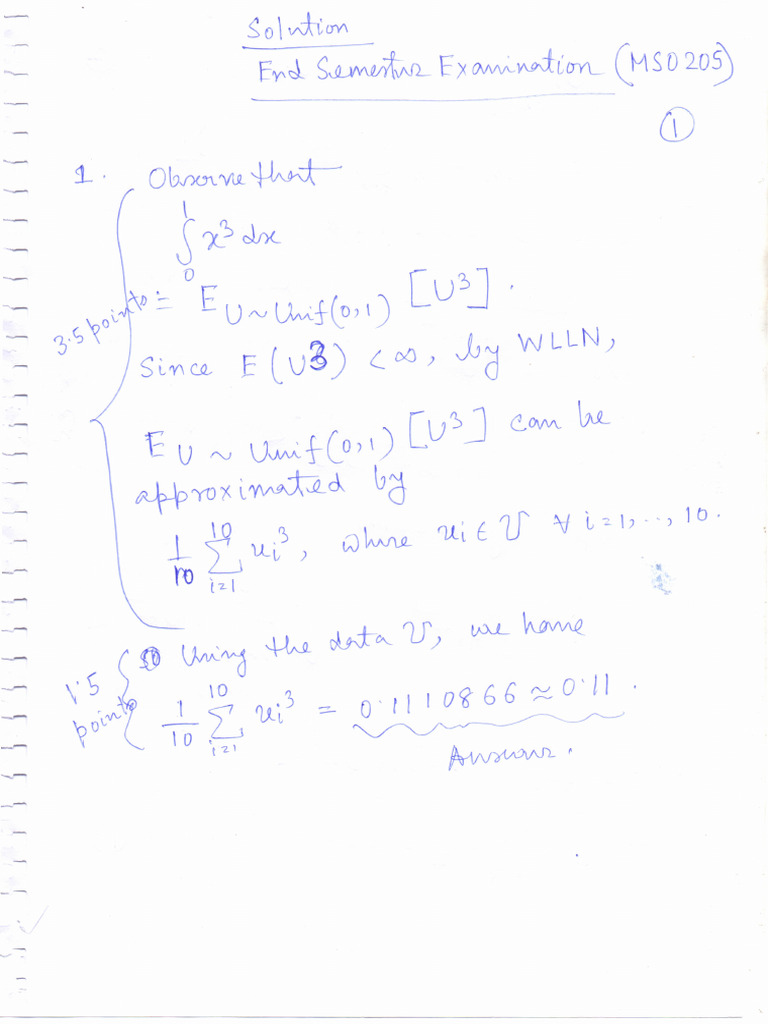 Solution
End Semester Examination (MSO 205)
1
1. Observe that
∫₀¹ x³ dx
3.5 points = E_{U∼Unif(0,1)} [U³].
Since E(U3) < ∞, by WLLN,
E_{U ∼ Unif(0,1)} [U³] can be
approximated by
1/10 ∑_{i=1}^{10} u_i³, where u_i ∈ U ∀ i=1, .., 10.
Using the data U, we have
1.5 points 1/10 ∑_{i=1}^{10} u_i³ = 0.1110866 ≈ 0.11.
Answer.